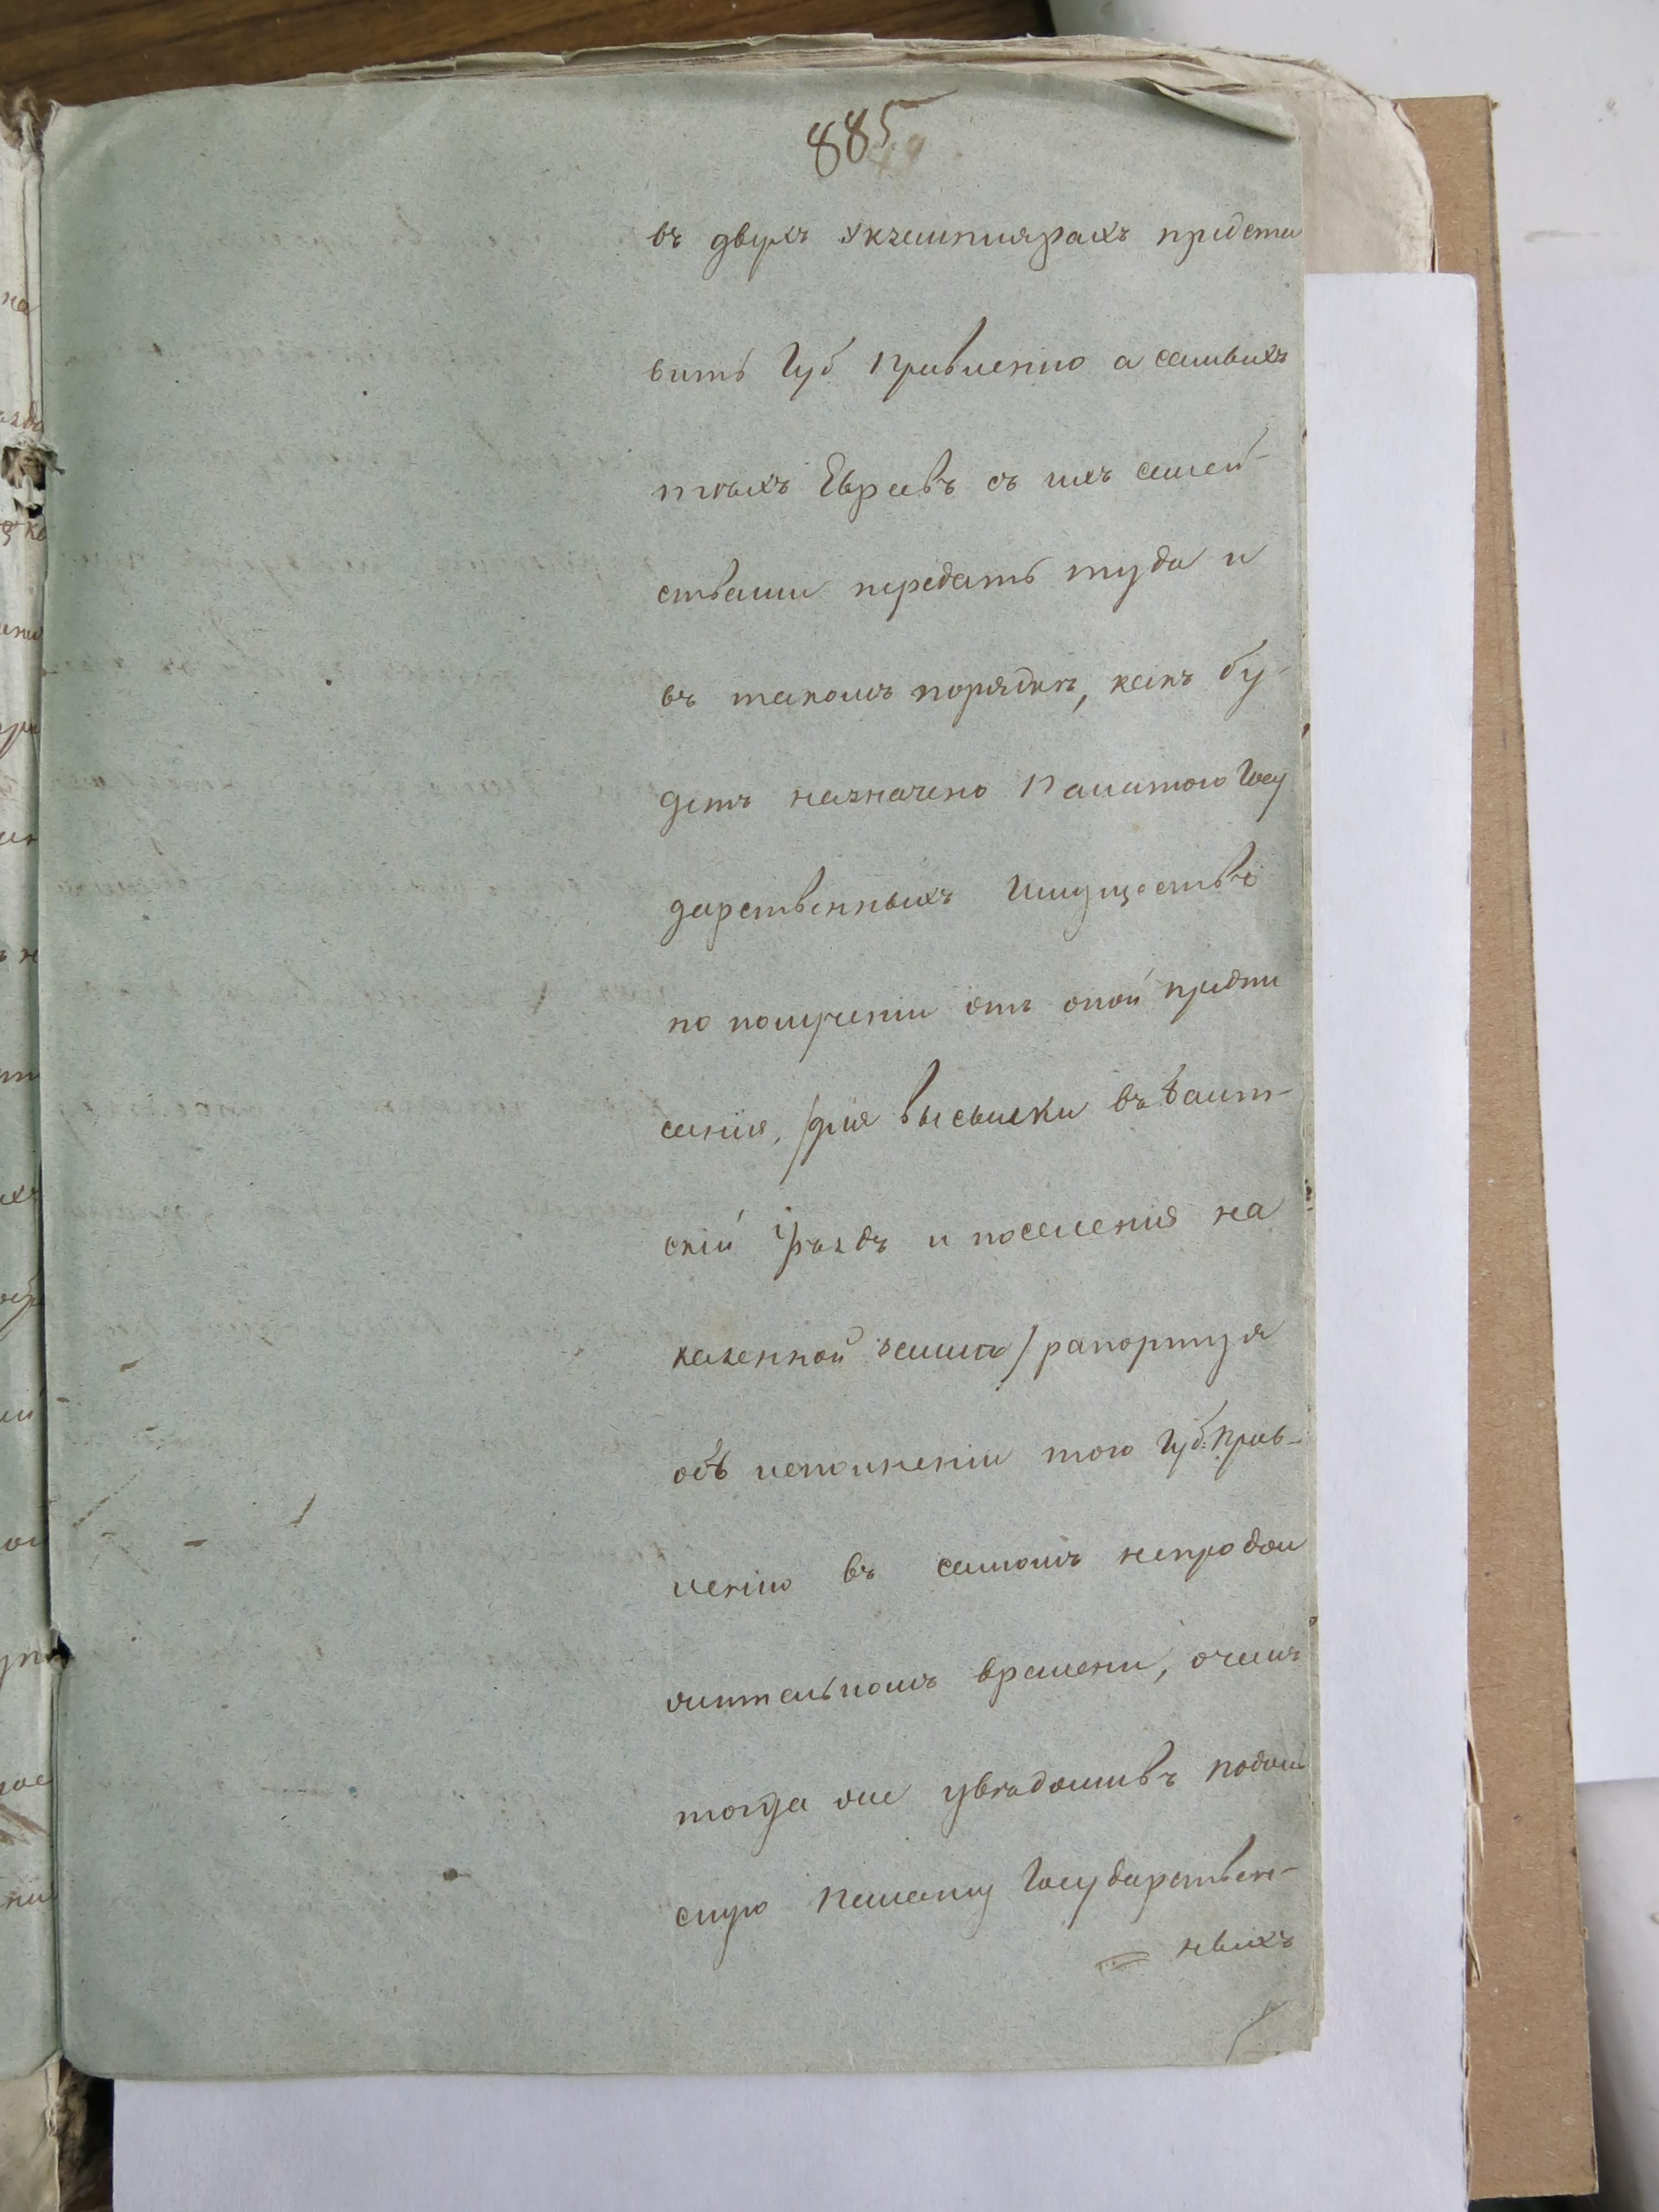 885
въ двухъ Экземплярахъ предста
вить Губ Правленію а самыхъ
тѣхъ Евреевъ съ ихъ семей-
ствами передать туда и
въ такомъ порядкѣ, какъ бу-
детъ назначено Палатою Госу
дарственныхъ Имуществъ
по полученіи отъ оной предпи
санія, /для высылки въ Балт-
скій Уѣздъ и поселенія на
казенной землѣ/ рапортуя
объ исполненіи того Губ: Прав-
ленію въ самомъ непродол
жительномъ времени, о чемъ
тогда же увѣдомивъ Подоль
скую Палату Государствен-
ныхъ